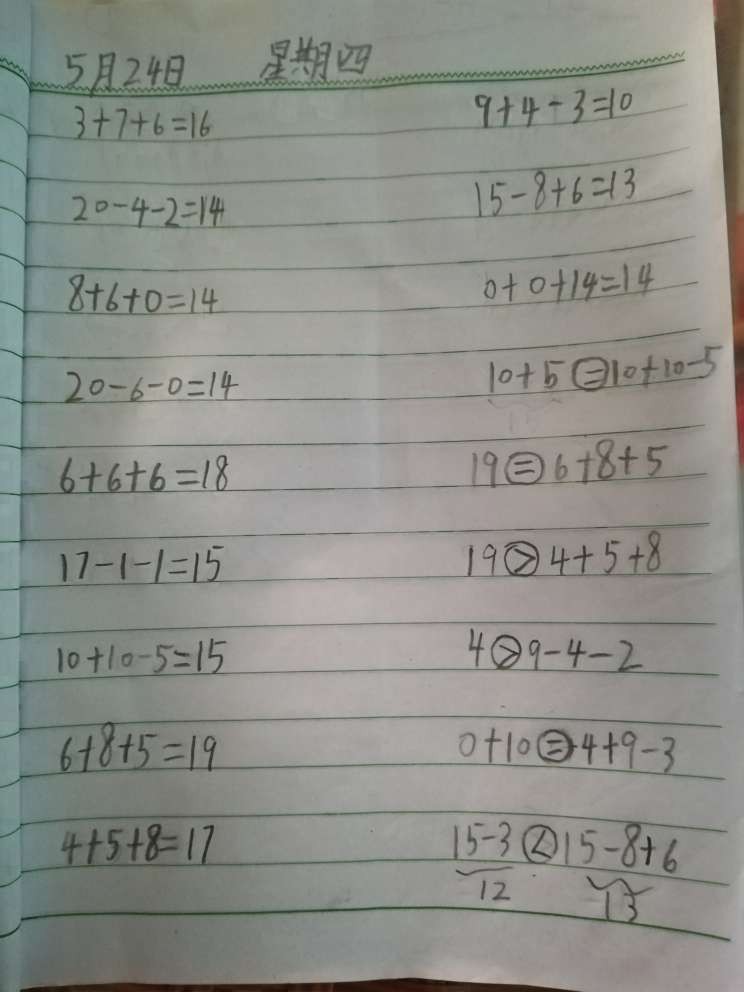 5月24日 星期四
3+7+6=16 9+4-3=10
20-4-2=14 15-8+6=13
8+6+0=14 0+0+14=14
20-6-0=14 10+5=10+10-5
6+6+6=18 19=6+8+5
17-1-1=15 19>4+5+8
10+10-5=15 4>9-4-2
6+8+5=19 0+10=4+9-3
4+5+8=17 15-3<15-8+6
12 13